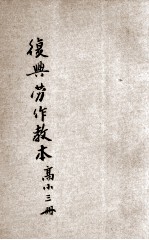 復興勞作教本高小三冊